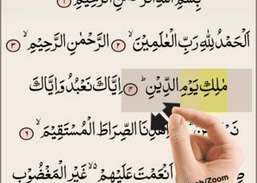 بِسْمِ اللّٰهِ الرَّحْمٰنِ الرَّحِيْمِ ۱
اَلْحَمْدُ لِلّٰهِ رَبِّ الْعٰلَمِيْنَ ۙ ۲ الرَّحْمٰنِ الرَّحِيْمِ ۙ ۳
مٰلِكِ يَوْمِ الدِّيْنِ ؕ ۴ اِيَّاكَ نَعْبُدُ وَاِيَّاكَ
الصِّرَاطَ الْمُسْتَقِيْمَ ۙ ۶
اَنْعَمْتَ عَلَيْهِمْ ۙ غَيْرِ الْمَغْضُوْبِ
/Zoom